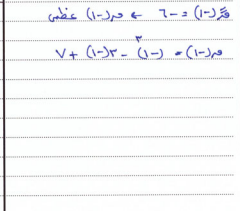 ق\u0651(-١) = -٦ ← ق(-١) عظمى
ق(-١) = (-١)^٣ - ٣(-١) + ٧